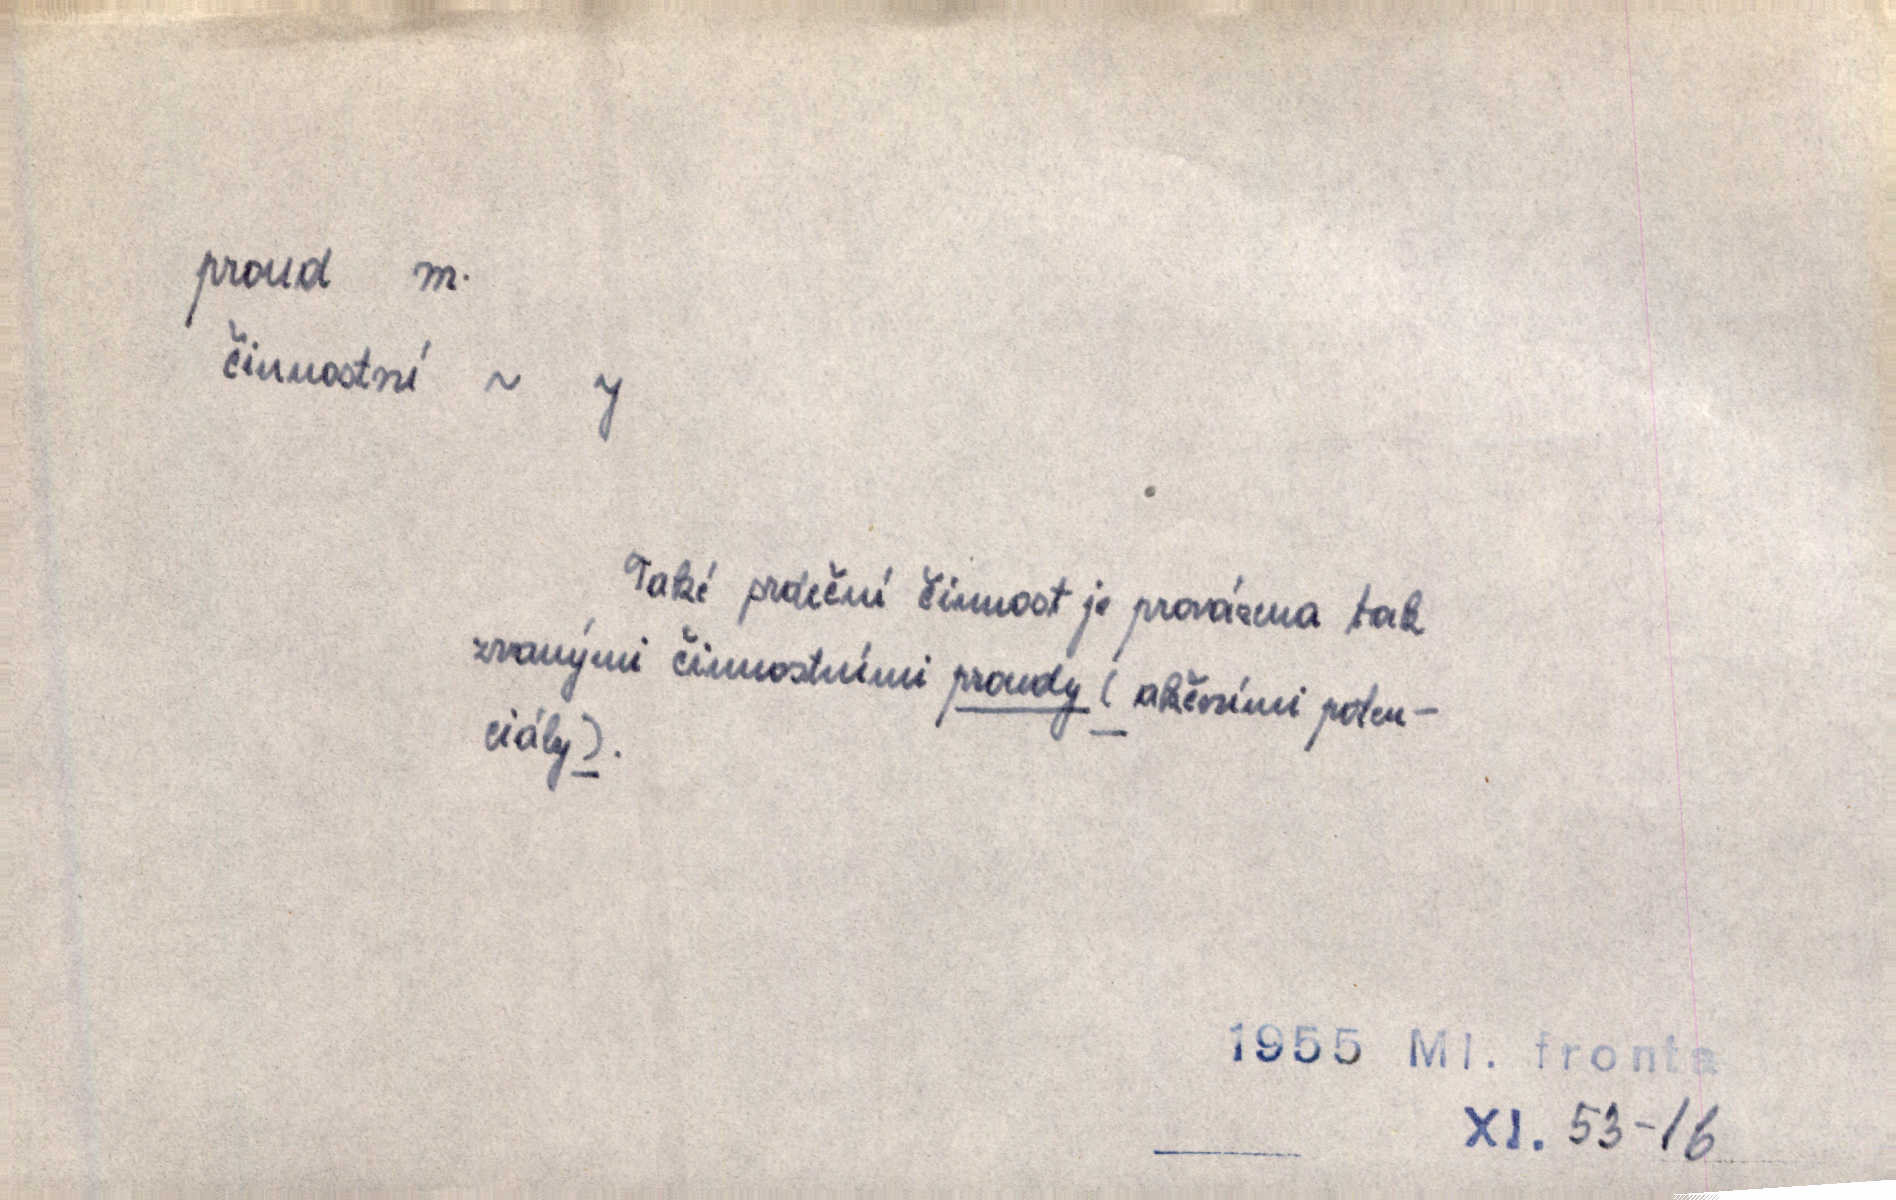 proud m.
činnostní ~ y
Také srdeční činnost je provázena tak
zvanými činnostními proudy ( akčními poten-
ciály ).
1955 Ml. fronta
XI. 53-16